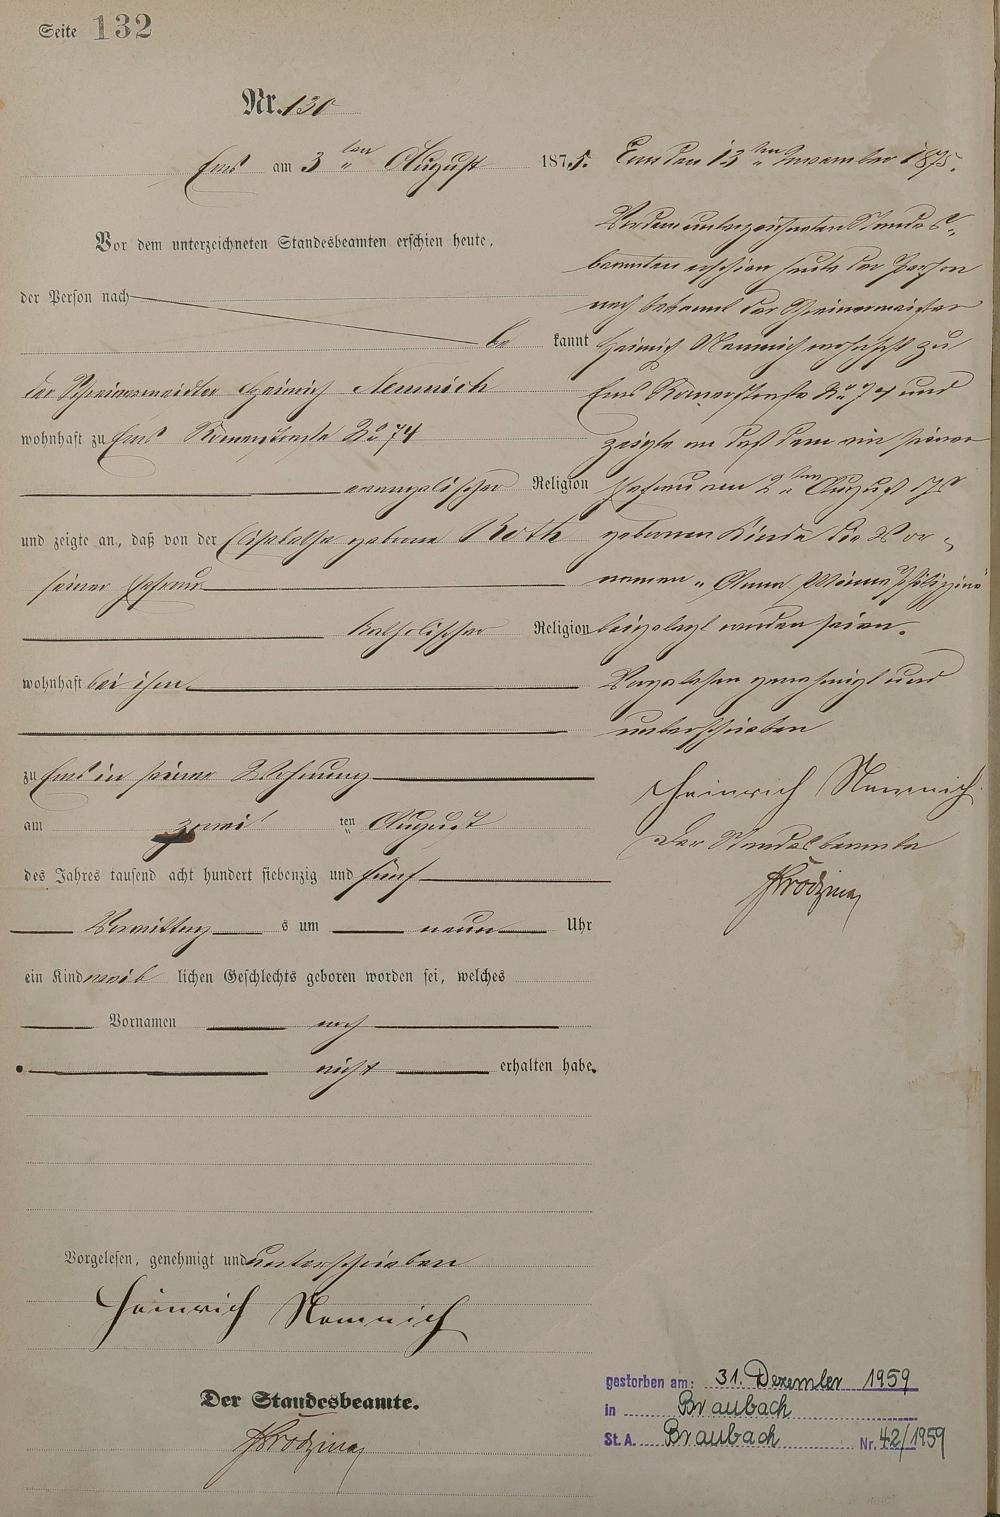 Seite 132
Nr. 130
Ems am 3ten August 1875.
Vor dem unterzeichneten Standesbeamten erschien heute,
der Person nach
be kannt
der Schreinermeister Heinrich Nemnich
wohnhaft zu Ems Römerstraße No 74
evangelischer Religion
und zeigte an, daß von der Elisabetha geborene Roth
seiner Ehefrau
katholischer Religion
wohnhaft bei ihm
zu Ems in seiner Wohnung
am zwei ten August
des Jahres tausend acht hundert siebenzig und fünf
Vormittag s um neun Uhr
ein Kind weib lichen Geschlechts geboren worden sei, welches
Vornamen noch
nicht erhalten habe.
Vorgelesen, genehmigt und unterschrieben
Heinrich Nemnich
Der Standesbeamte.
Ems den 13ten November 1875.
Vor dem unterzeichneten Standes-
beamten erschien heute der Person
nach bekannt der Schreinermeister
Heinrich Nemnich wohnhaft zu
Ems Römerstraße No 74 und
zeigte an daß dem von seiner
Ehefrau am 2ten August d Js
geborenen Kinde die Vor-
namen "Anna Minna Philippine
beigelegt worden seien.
Vorgelesen genehmigt und
unterschrieben
Heinrich Nemnich
Der Standesbeamte
gestorben am: 31. Dezember 1959
in Braubach
St.A. Braubach Nr. 42/1959